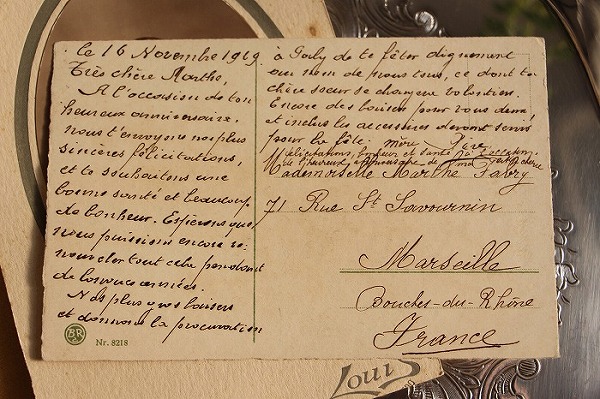 le 16 Novembre 1919
Très chère Marthe,
A l'occasion de ton
heureux anniversaire,
nous t'envoyons nos plus
sincères félicitations,
et te souhaitons une
bonne santé et beaucoup
de bonheur. Espérons que
nous puissions encore re-
nouveler tout cela pendant
de longues années.
Nos plus gros baisers
et donnons la procuration
à Goily de te fêter dignement
au nom de nous tous, ce dont ta
chère soeur se chargera volontiers.
Encore des baisers pour vous deux
et inclus les accessoires devant servir
pour la fête. mère Père
félicitations, bonheur et santé à l'occasion
de l'heureux anniversaire de
Mademoiselle Marthe Favry
71 Rue St Savournin
Marseille
Bouches-du-Rhône
France
BR
Nr. 8218
Louis